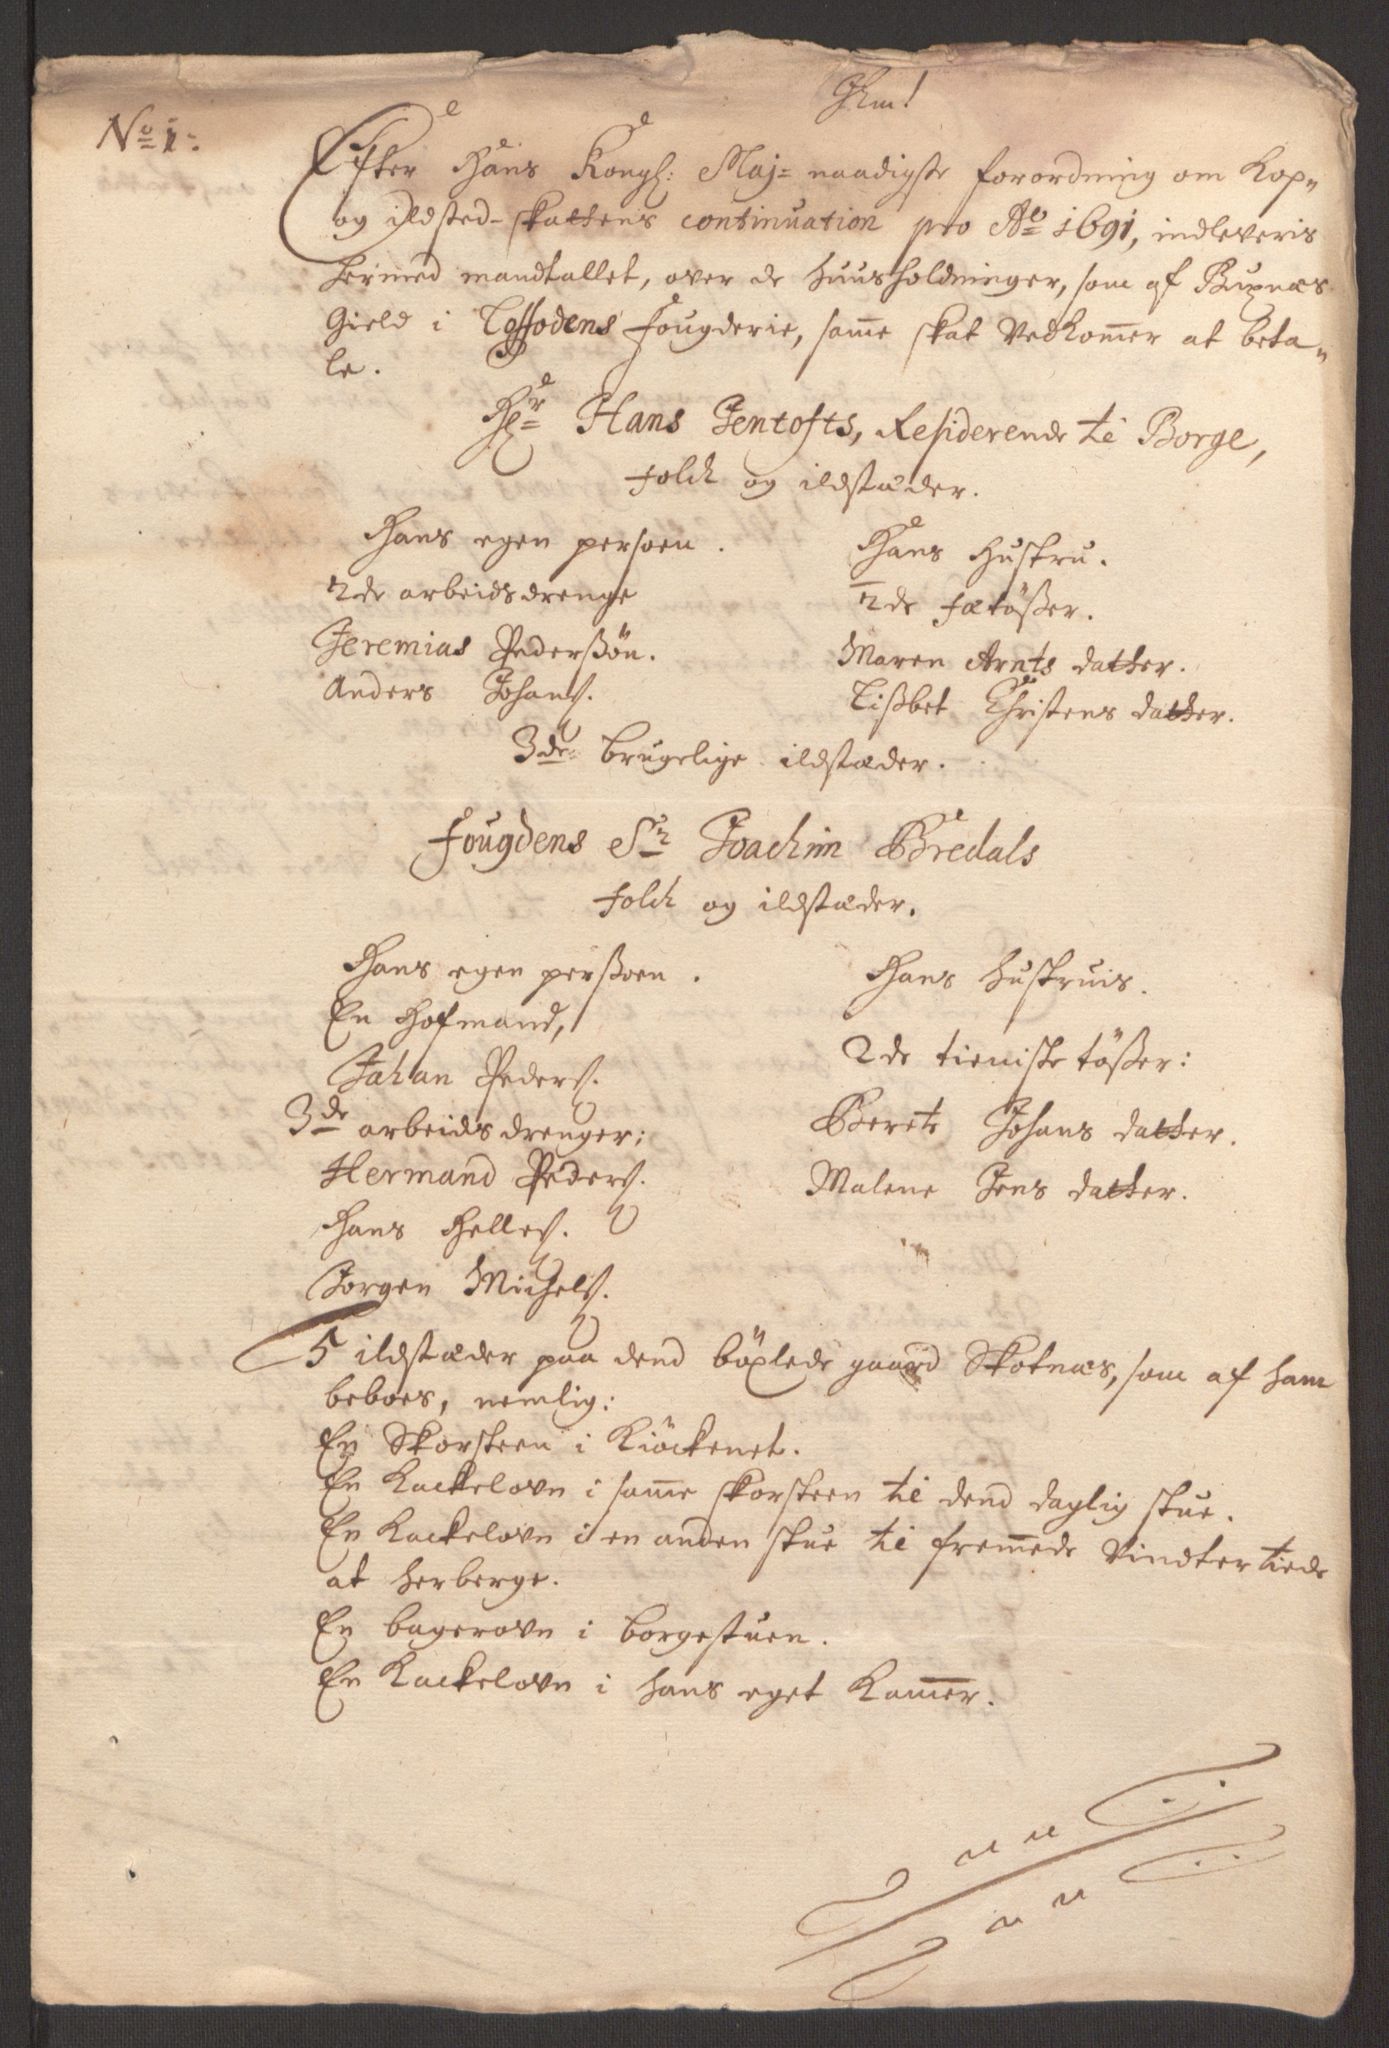 No 1:
Efter Hans Kongl: Maj= naadigste forordning om Kop=
og ildsted-skattens continuation pro Ao 1691, indleveris
hermed mandtallet, over de huusholdninger, som af Buxnæs
Gield i Loffodens fougderie, samme skat vedkommer at beta=
le.
Hr Hans Jentofts, Residerende til Borge,
folck og ildstæder.
Hans egen persoen.
Hans Hustru.
2de arbeids drenge
2de fætösser.
Jeremias Pederssön.
Maren Arnts datter.
Anders Johans.
Lissbet Christens datter.
3de brugelige ildstæder.
Fougdens Sr Joachim Bredals
folck og ildstæder.
Hans egen perssoen.
Hans hustruis.
En Hofmand,
2de tieniste tösser:
Johan Peders.
3de arbeids drenger:
Berete Johans datter.
Hermand Peders.
Malene Jens datter.
Hans Helles.
Jorgen Michels.
5 ildstæder paa dend böxlede gaard Skotnæs, som af ham
beboes, nemlig:
En Skorsteen i Kiöckenet.
En Kackelovn i samme skorsteen til dend daglig stue.
En Kackelovn i en anden stue til fremmede vindter tiede
at herberge.
En bagerovn i borgestuen.
En Kackelovn i hans eget Kammer.